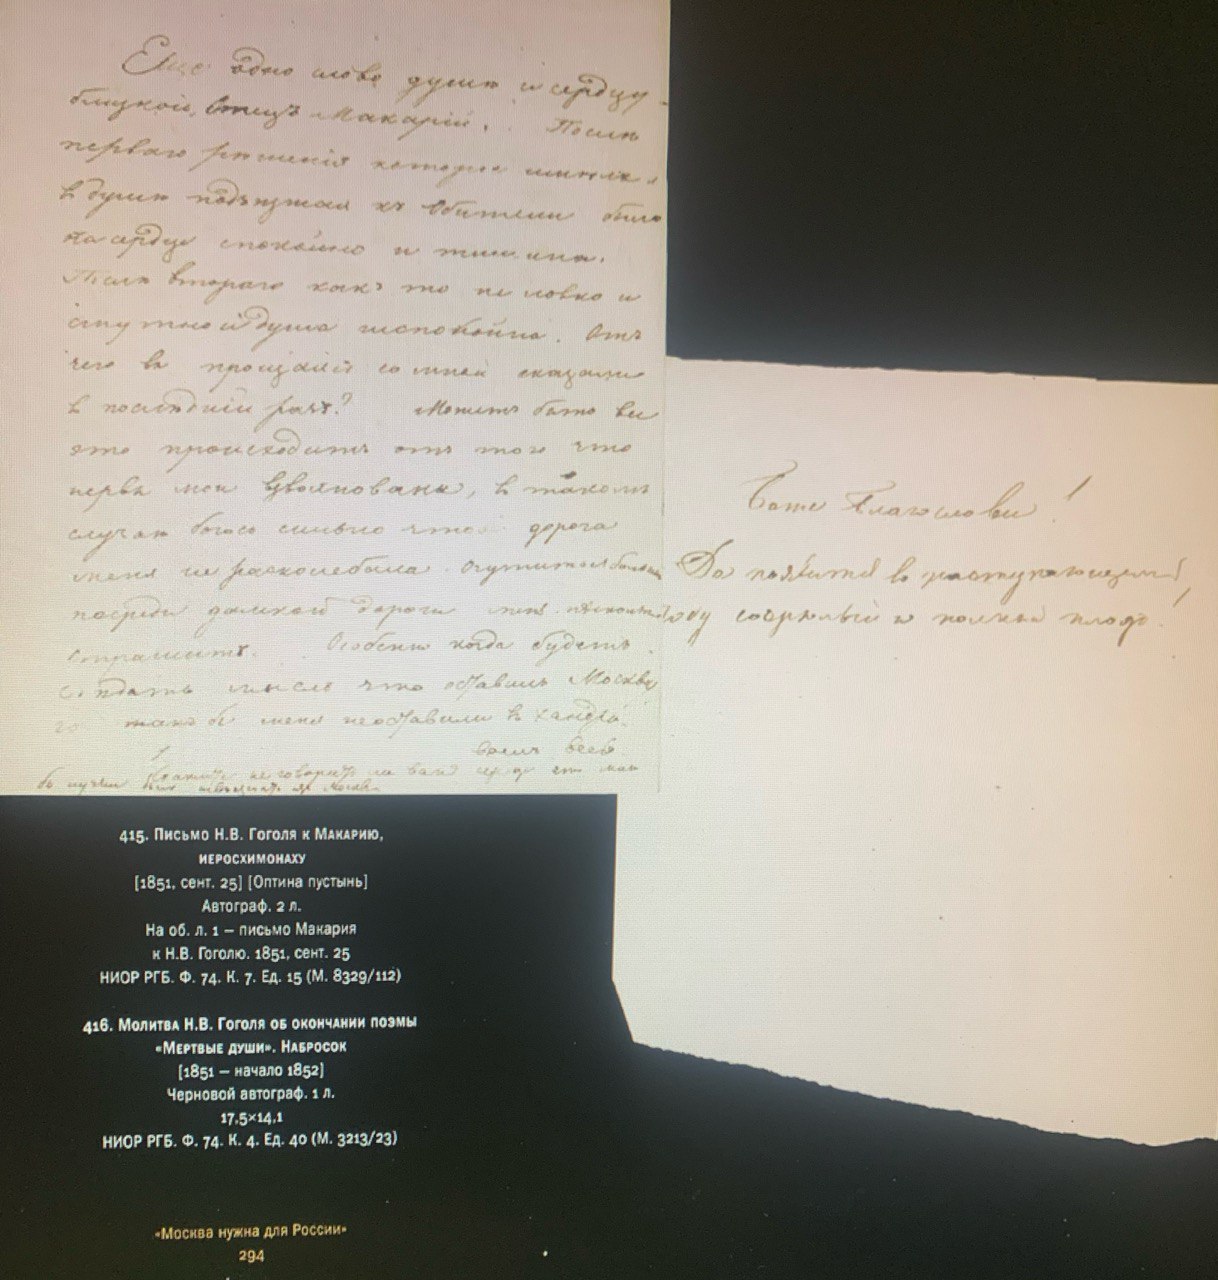 Еще одно слово душе и сердцу
близкой, Отецъ Макарій. Послѣ
перваго рѣшенія которое имѣлъ я
в душѣ подъѣзжая къ обители было
на сердце спокойно и тишина.
Послѣ втораго какъ то не ловко и
смутно и душа неспокойна. Отъ
чего вы прощаясь со мной сказали
в послѣдній разъ? Можетъ быть все
это происходитъ отъ того что
нервы мои взволнованы, в такомъ
случаѣ боюсь сильно чтобы дорога
меня не расколебала. Очутиться больным
посреди далекой дороги меня нѣсколько
страшитъ. Особенно когда будетъ
съѣдать мысль что оставилъ Москву
гдѣ такъ бы меня не оставили в хандрѣ.
Вашъ весь.
не говоритъ ли вамъ сердце что мнѣ
бы лучше было Москвы
Боже благослови!
Да появится в наступающем
году созрелый и полный плод!
415. Письмо Н.В. Гоголя к Макарию,
иеросхимонаху
[1851, сент. 25] [Оптина пустынь]
Автограф. 2 л.
На об. л. 1 – письмо Макария
к Н.В. Гоголю. 1851, сент. 25
НИОР РГБ. Ф. 74. К. 7. Ед. 15 (М. 8329/112)
416. Молитва Н.В. Гоголя об окончании поэмы
«Мертвые души». Набросок
[1851 – начало 1852]
Черновой автограф. 1 л.
17,5×14,1
НИОР РГБ. Ф. 74. К. 4. Ед. 40 (М. 3213/23)
«Москва нужна для России»
294